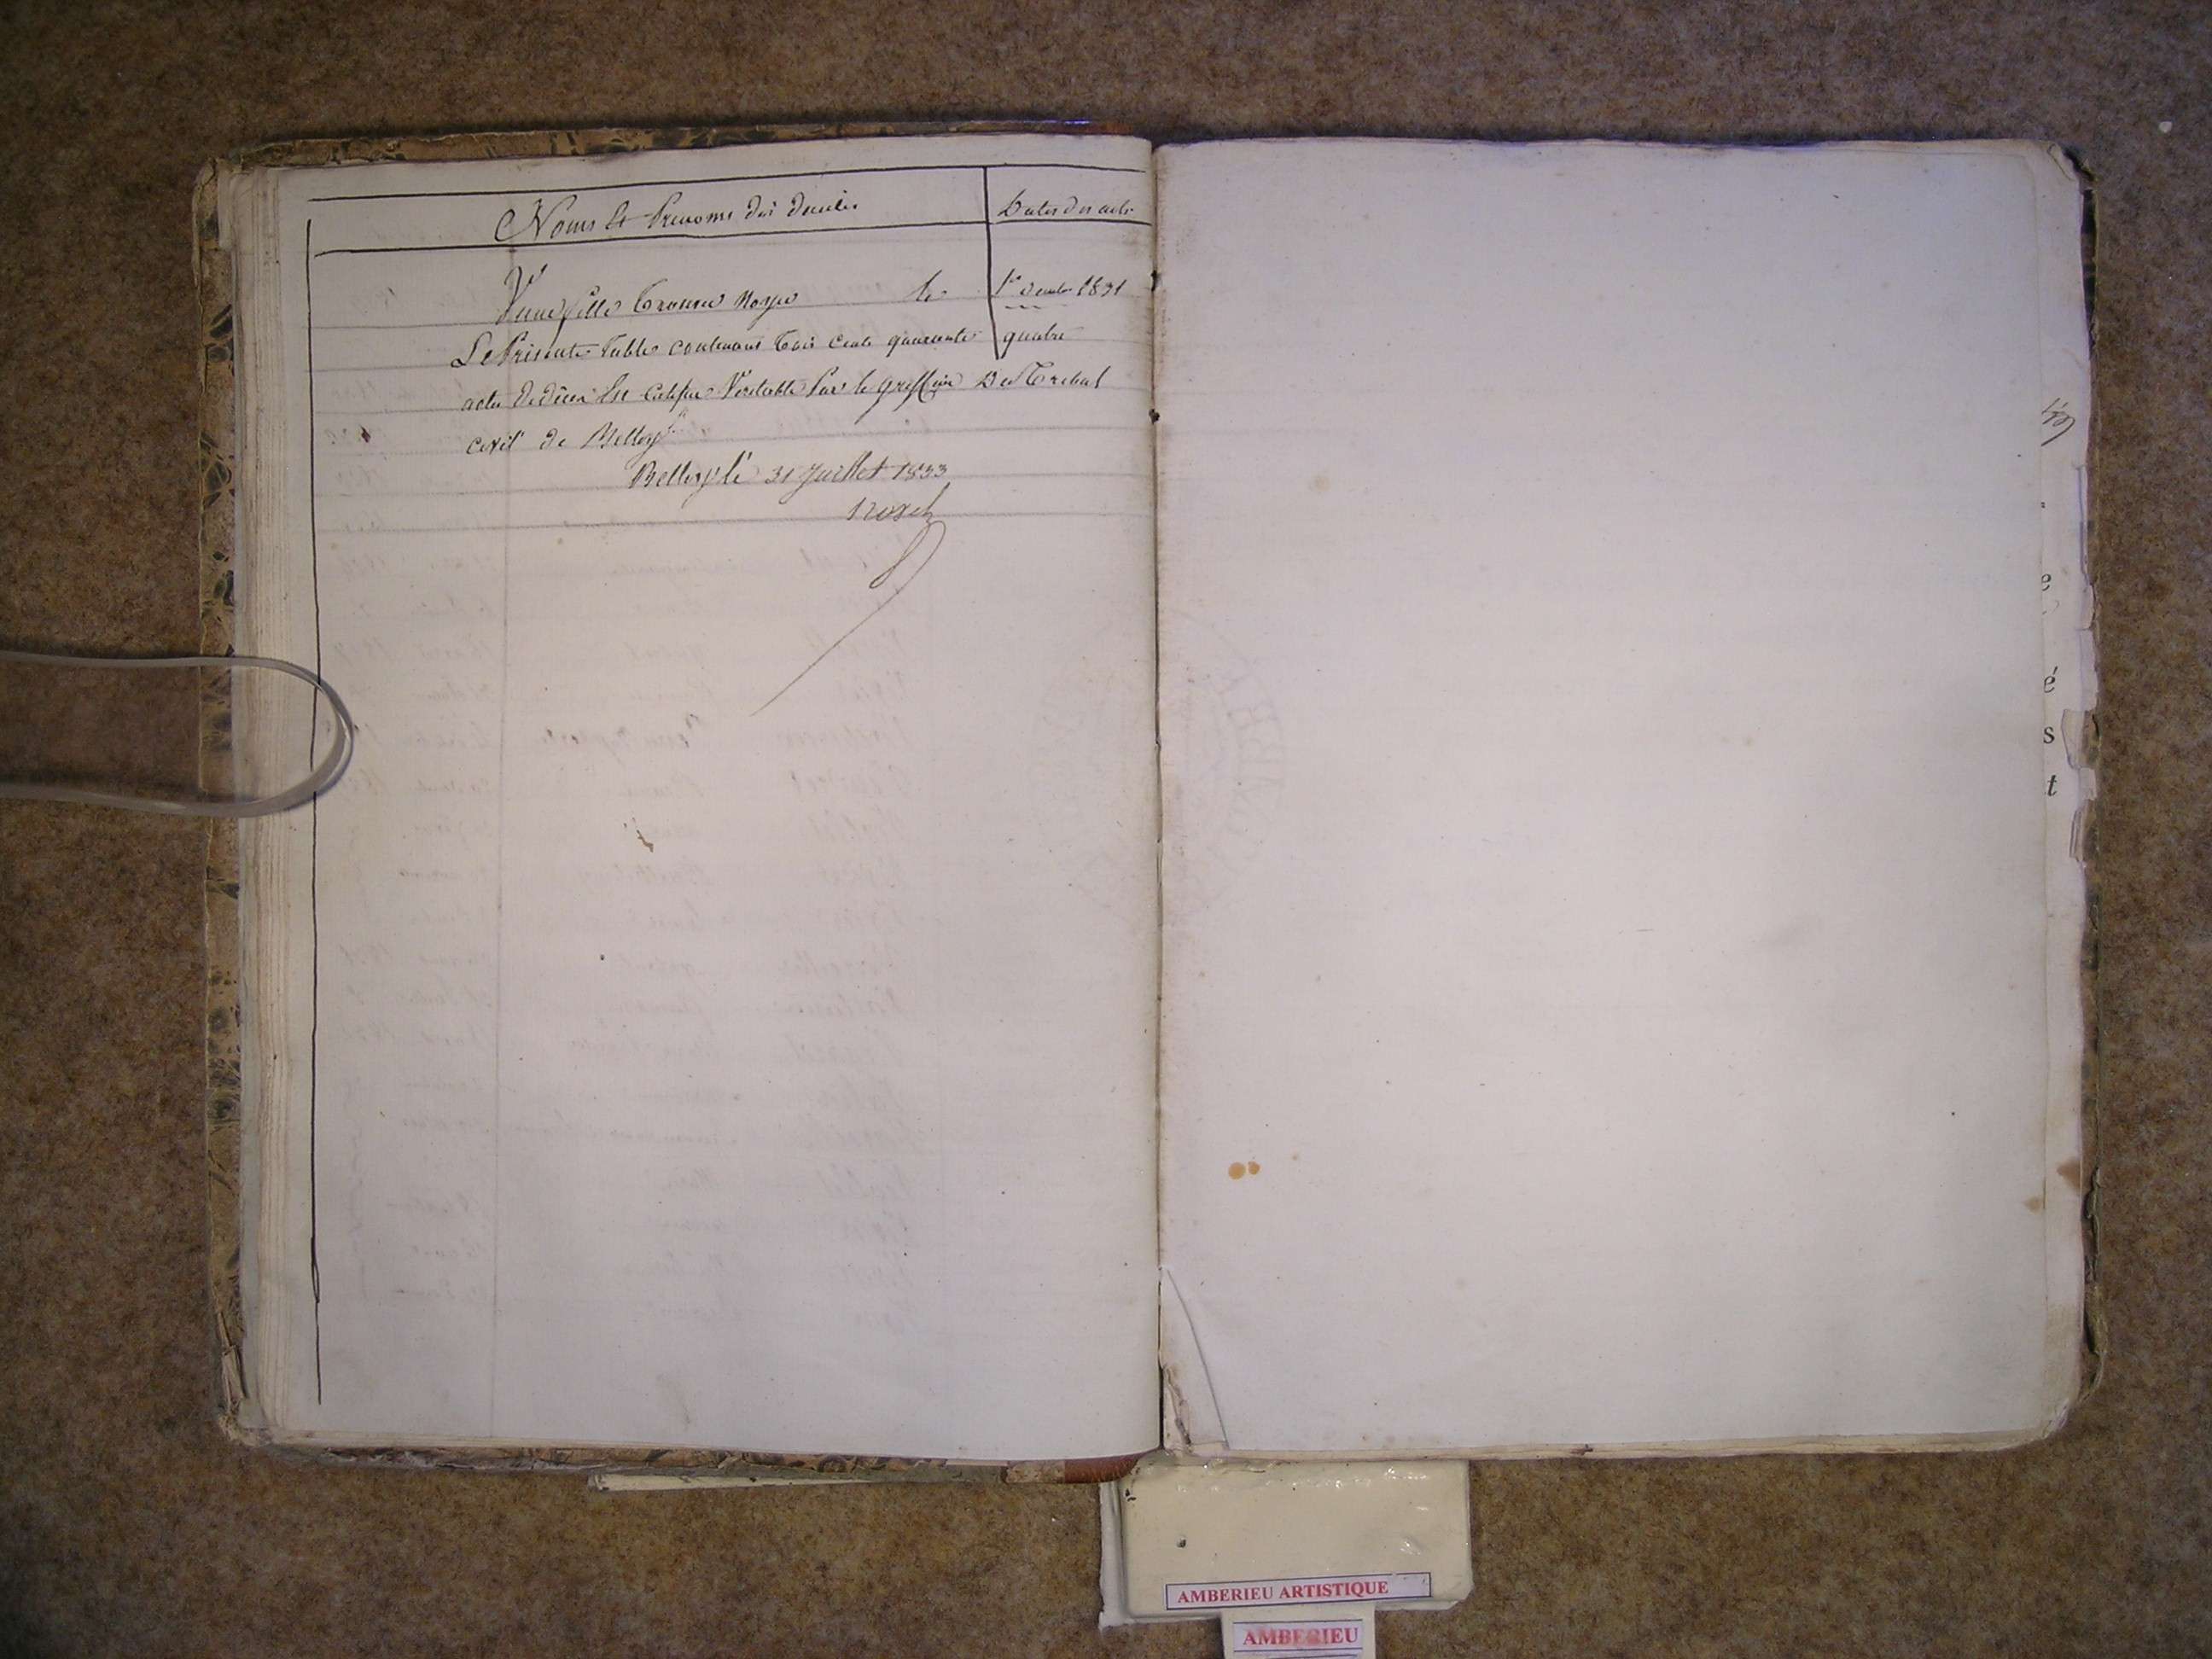 Noms Et Prenoms des décédés
Dates des actes
V
Une fille Trouvée Noyée le 1er decembre 1831
Le Présente Table contenant Trois Cents quarante quatre
actes de décès Est Certifiée Veritable Par le greffier Du Tribal
civil de Belley
Belley le 31 Juillet 1833
e
é
s
t
AMBERIEU ARTISTIQUE
AMBERIEU